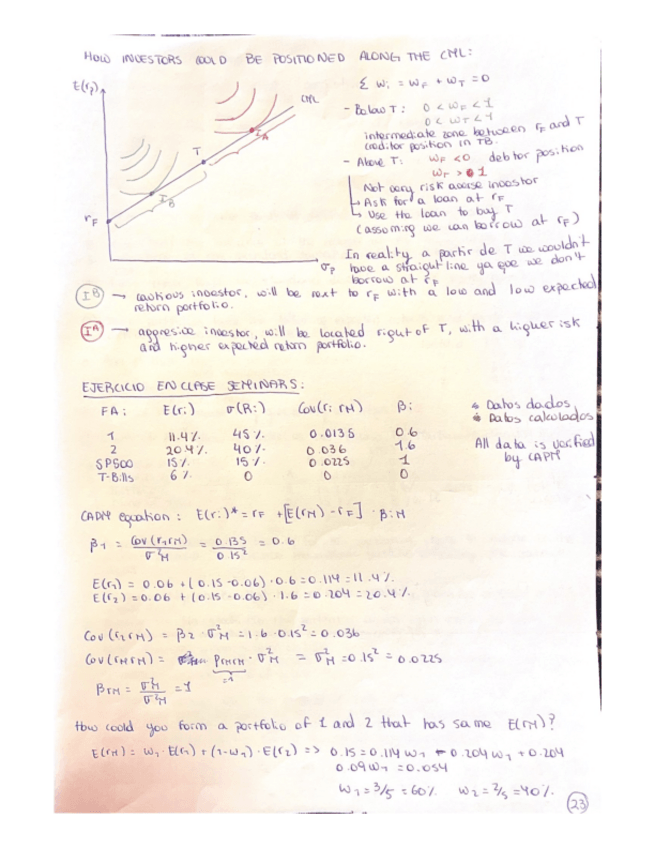 HOW INVESTORS COULD BE POSITIONED ALONG THE CML:
E(rp)
CML
IA
T
IB
rF
σp
Σ wi = wF + wT = 0
- Below T: 0 < wF < 1
0 < wT < 1
intermediate zone between rF and T
creditor position in TB.
- Above T: wF < 0 debtor position
wF > 1
Not very risk averse investor
Ask for a loan at rF
Use the loan to buy T
(assuming we can borrow at rF)
In reality a partir de T we wouldn't
have a straight line ya que we don't
borrow at rF
IB → cautious investor, will be next to rF with a low and low expected
return portfolio.
IA → aggresive investor, will be located right of T, with a higher risk
and higher expected return portfolio.
EJERCICIO EN CLASE SEMINARS:
FAi E(ri) σ(Ri) Cov(ri rM) βi
1 11.4% 45% 0.0135 0.6
2 20.4% 40% 0.036 1.6
SP500 15% 15% 0.0225 1
T-Bills 6% 0 0 0
Datos dados
Datos calculados
All data is verified
by CAPM
CAPM equation: E(ri)* = rF + [E(rM) - rF] · βiM
β1 = Cov(r1 rM) / σ²M = 0.135 / 0.15² = 0.6
E(r1) = 0.06 + (0.15 - 0.06) · 0.6 = 0.114 = 11.4%
E(r2) = 0.06 + (0.15 - 0.06) · 1.6 = 0.204 = 20.4%
Cov(r2 rM) = β2 · σ²M = 1.6 · 0.15² = 0.036
Cov(rM rM) = ρrMrM · σ²M = σ²M = 0.15² = 0.0225
=1
βrM = σ²M / σ²M = 1
How could you form a portfolio of 1 and 2 that has same E(rM)?
E(rM) = w1 · E(r1) + (1-w1) · E(r2) => 0.15 = 0.114 w1 - 0.204 w1 + 0.204
0.09 w1 = 0.054
w1 = 3/5 = 60% w2 = 2/5 = 40%
23